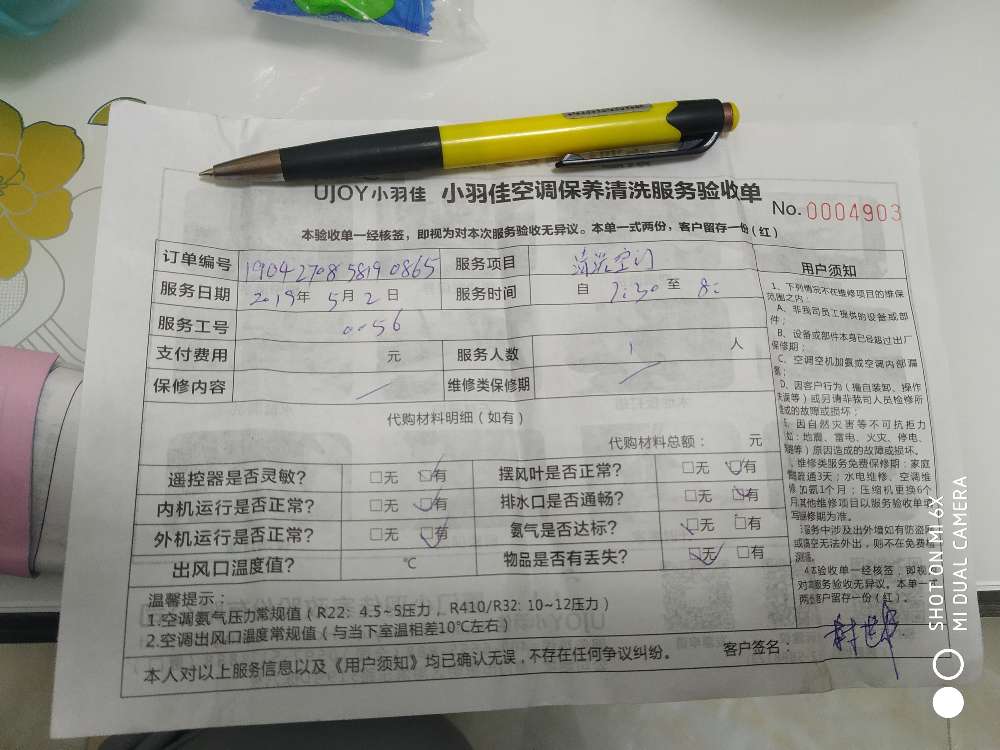 UJOY小羽佳 小羽佳空调保养清洗服务验收单
No. 0004903
本验收单一经核签，即视为对本次服务验收无异议。本单一式两份，客户留存一份（红）
订单编号 19042708 5819 0865 服务项目 清洗空门
服务日期 2019年 5月 2日 服务时间 自 7:30 至 8:
服务工号 0056
支付费用 元 服务人数 1 人
保修内容 维修类保修期
代购材料明细（如有）
代购材料总额： 元
遥控器是否灵敏？ □无 □有 摆风叶是否正常？ □无 □有
内机运行是否正常？ □无 □有 排水口是否通畅？ □无 □有
外机运行是否正常？ □无 □有 氨气是否达标？ □无 □有
出风口温度值？ ℃ 物品是否有丢失？ □无 □有
温馨提示：
1.空调氨气压力常规值（R22: 4.5~5压力， R410/R32: 10~12压力）
2.空调出风口温度常规值（与当下室温相差10℃左右）
本人对以上服务信息以及《用户须知》均已确认无误，不存在任何争议纠纷。
客户签名：
用户须知
1、下列情况不在维修项目的维保
范围之内：
A、非我司员工提供的设备或部
件；
B、设备或部件本身已经超过出厂
保修期；
C、空调空机加氨或空调内部漏
氨；
D、因客户行为（擅自装卸、操作
等）或另请非我司人员检修所
成的故障或损坏；
因自然灾害等不可抗拒力
如：地震、雷电、火灾、停电、
等）原因造成的故障或损坏。
维修类服务免费保修期：家庭
疏通3天；水电维修、空调维
加氨1个月；压缩机更换6个
月其他维修项目以服务验收单
写保修期为准。
服务中涉及出外墙如有防盗
或空无法外出，则不在免费
4本验收单一经核签，即视
对服务验收无异议。本单一
两客户留存一份（红）。
SHOT ON MI 6X
MI DUAL CAMERA